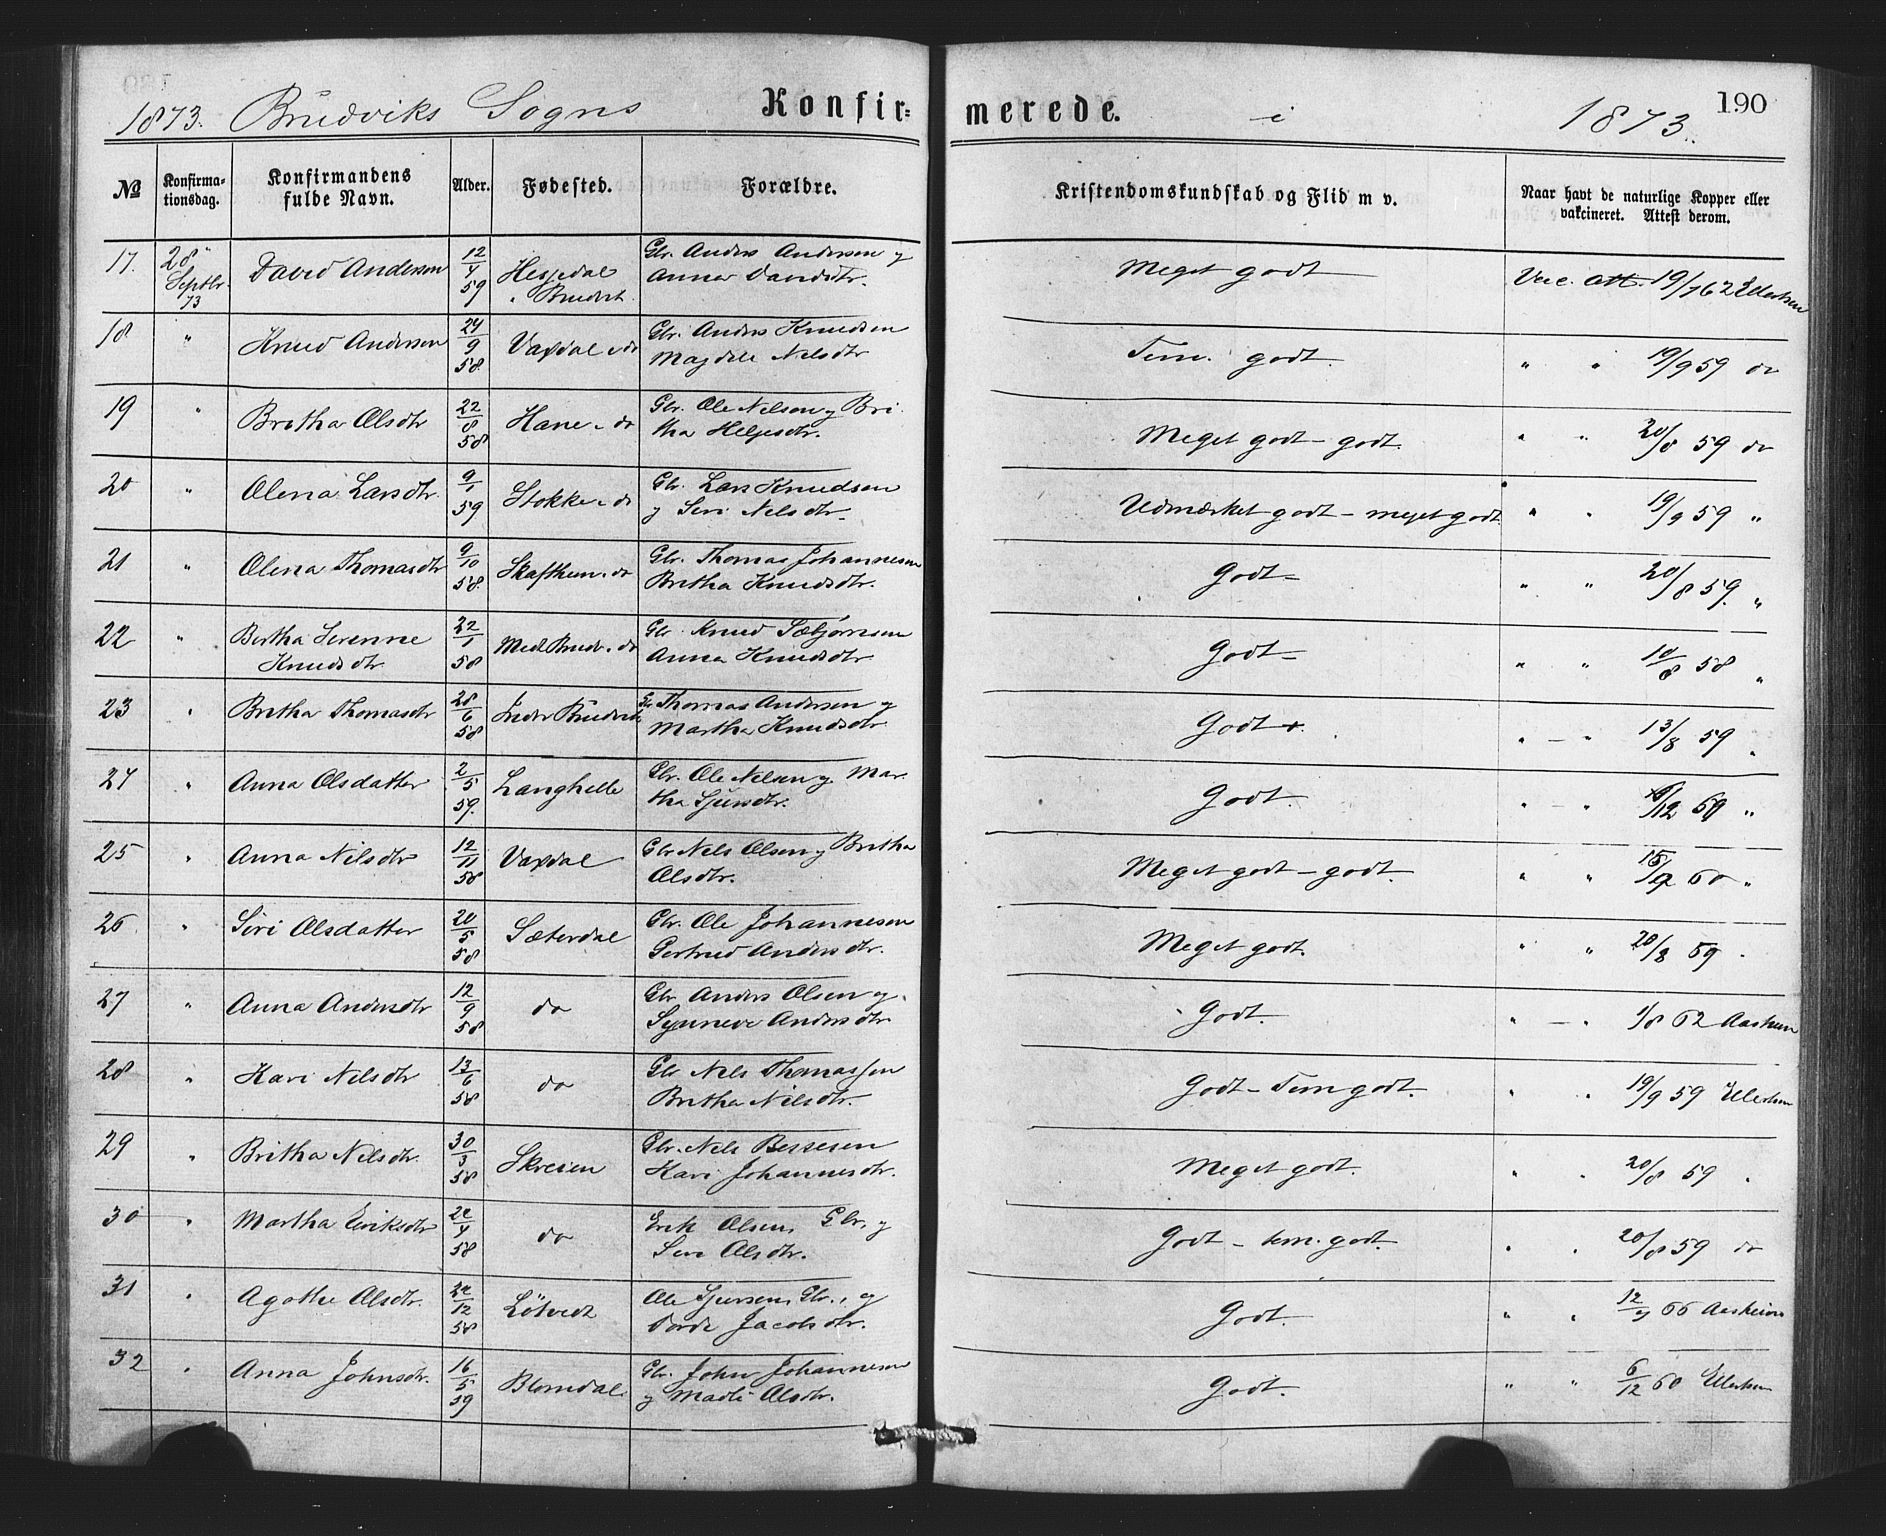 1873. Brudviks Sogns Konfirmerede. i 1873. 190
№ Konfirmationsdag. Konfirmandens fulde Navn. Alder. Fødested. Forældre. Kristendomskundskab og Flid m v. Naar havt de naturlige Kopper eller vakcineret. Attest derom.
17. 28 Septbr. 73 David Andersen 12/4 59 Hesjedal i Brudvik Gbr. Anders Andersen og Anna Davidsdtr. Meget godt Vac. Att. 19/7 62 Ellertsen
18 " Knud Andersen 24/9 58. Vaxdal i do Gbr. Anders Knudsen Magdele Nilsdtr Tem. godt. " " 19/9 59 do
19 " Britha Olsdtr 22/8 58 Hane i do Gbr. Ole Nilsen og Britha Helgesdtr. Meget godt - godt. " " 20/8 59 do
20 " Olena Larsdtr. 9/1 59 Stokke i do Gbr. Lars Knudsen og Siri Nilsdtr. Udmærket godt - meget godt " " 19/9 59 "
21 " Olena Thomasdtr 9/10 58. Skafthun i do Gbr. Thomas Johannesen Britha Knudsdtr. Godt - " " 20/8 59. "
22 " Bertha Serenne Knudsdtr 22/1 58 Med Brudv. i do Gbr. Knud Sæbjørnsen Anna Knudsdtr Godt - " " 10/8 58 "
23 " Britha Thomasdtr 28/6 58 Indre Brudvik Gbr Thomas Andersen og Martha Knudsdtr Godt +. " - " 13/8 59 "
24 " Anna Olsdatter 2/5 59. Langhelle Gbr. Ole Nilsen og Martha Sjursdtr. Godt. " - " 6/12 60 "
25 " Anna Nilsdtr 12/11 58 Vaxdal Gbr Nils Olsen og Britha Olsdtr. Meget godt - godt. " " 15/9 60 "
26. " Siri Olsdatter 20/5 58 Sæterdal Gbr. Ole Johannesen Gertrud Andersdtr. Meget godt. " " 20/8 59 "
27 " Anna Andersdtr 12/9 58 do Gbr Anders Olsen og Synneve Andersdtr. Godt. " - " 1/8 62 Aasheim
28 " Kari Nilsdtr 13/6 58 do Gbr Nils Thomassen Britha Nilsdtr. Godt - Tem godt. " " 19/9 59 Ellertsen
29 " Britha Nilsdtr. 30/3 58 Skreien Gbr. Nils Bessesen Kari Johannesdtr. Meget godt. " " 20/8 59 "
30 " Martha Eriksdtr 22/4 58 do Erik Olsen, Gbr, og Siri Olsdtr. Godt - tem. godt. " " 20/8 59 do
31 " Agathe Olsdtr. 22/12 58 Løtvedt Ole Sjursen, Gbr., og Dorde Jacobsdtr. Godt. " " 12/9 66 Aasheim
32 " Anna Johnsdtr. 16/5 59 Blomdal Gbr. John Johannesen og Madli Olsdtr. Godt. " " 6/12 60 Ellertsen